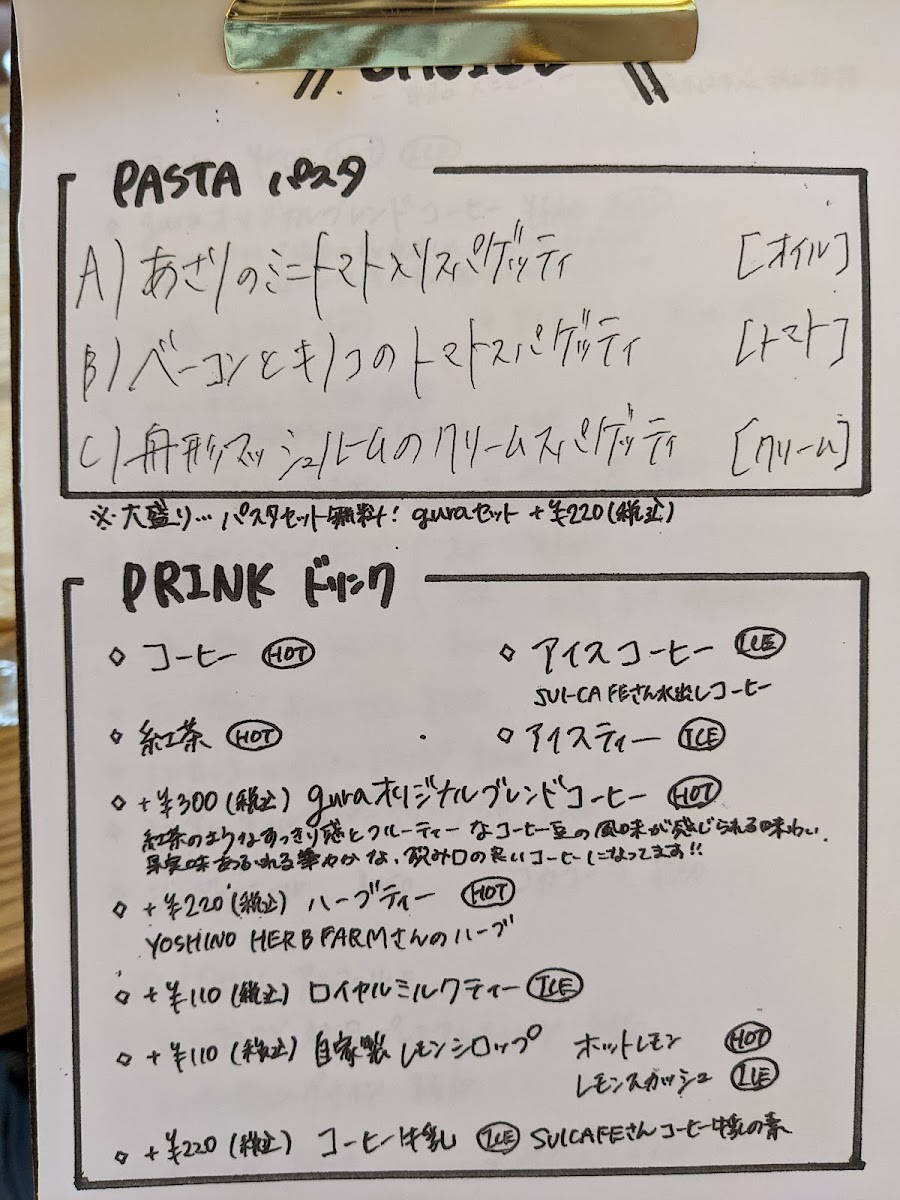 PASTA パスタ
A) あさりのミニトマト入りスパゲッティ [オイル]
B) ベーコンとキノコのトマトスパゲッティ [トマト]
C) 舟形マッシュルームのクリームスパゲッティ [クリーム]
※大盛り… パスタセット無料! guraセット +¥220(税込)
DRINK ドリンク
◇ コーヒー HOT
◇ アイスコーヒー ICE
SUI-CAFEさん水出しコーヒー
◇ 紅茶 HOT
◇ アイスティー ICE
◇ +¥300(税込) guraオリジナルブレンドコーヒー HOT
紅茶のようなすっきり感とフルーティーなコーヒー豆の風味が感じられる味わい、
果実味あふれる華やかな、飲み口の良いコーヒーになってます!!
◇ +¥220(税込) ハーブティー HOT
YOSHINO HERB FARMさんのハーブ
◇ +¥110(税込) ロイヤルミルクティー ICE
◇ +¥110(税込) 自家製レモンシロップ ホットレモン HOT
レモンスカッシュ ICE
◇ +¥220(税込) コーヒー牛乳 ICE SUICAFEさんコーヒー牛乳の素